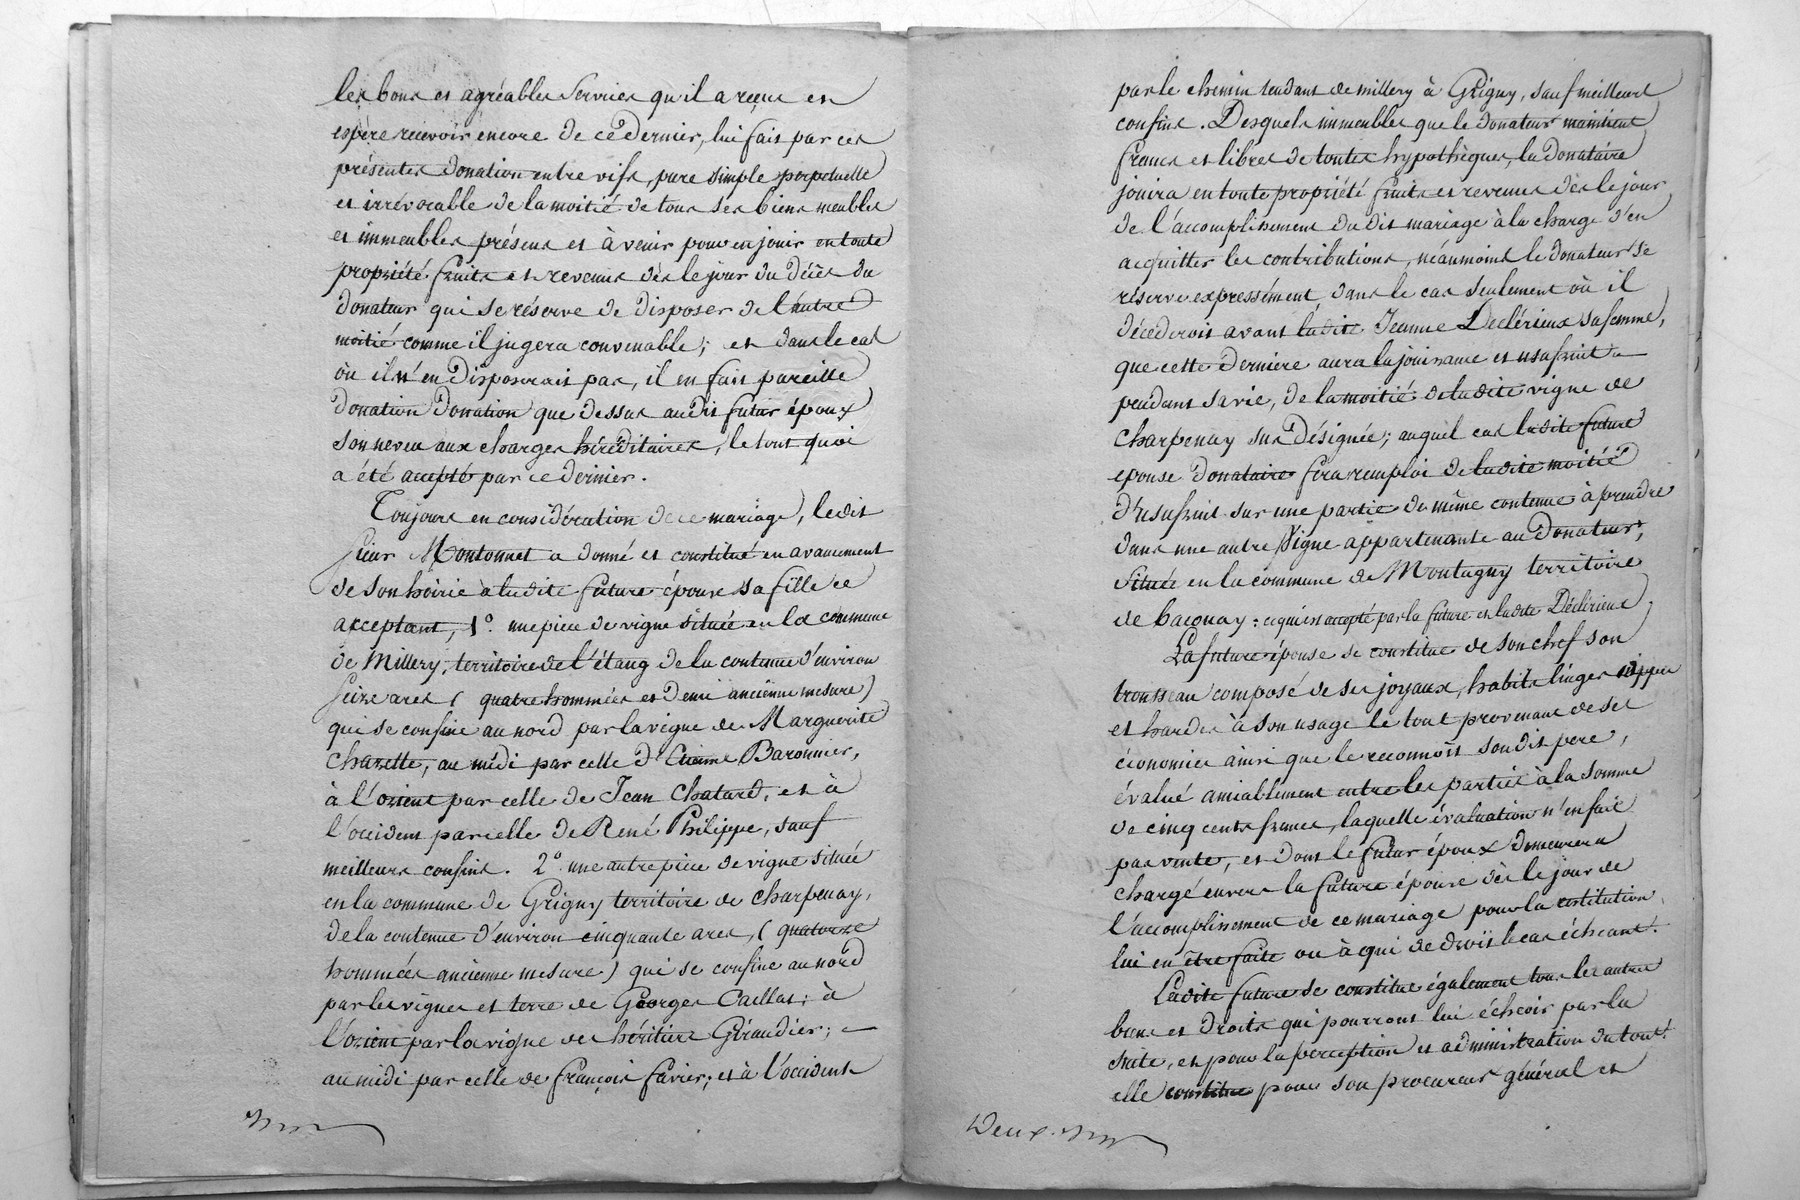 les bons et agréables services qu'il a reçus et
espère recevoir encore de ce dernier, lui fait par ces
présentes donation entre vifs, pure simple perpetuelle
et irrévocable de la moitié de tous ses biens meubles
et immeubles présens et à venir pour en jouir en toute
propriété fruits et revenus dès le jour du décès du
donateur qui se réserve de disposer de l'autre
moitié comme il jugera convenable; et dans le cas
où il n'en disposerait pas, il en fait pareille
donation donation que dessus audit futur époux
son neveu aux charges héréditaires, le tout quoi
a été accepté par ce dernier.
Toujours en considération de ce mariage, ledit
sieur Montonnet a donné et constitué en avancement
de son hoirie à ladite future épouse sa fille ce
acceptant, 1.° une piece de vigne située en la commune
de Millery, territoire de l'étang de la contenue d'environ
seize ares (quatre hommées et demi ancienne mesure)
qui se confine au nord par la vigne de Marguerite
Chazette, au midi par celle d'Etienne Baronnier,
à l'orient par celle de Jean Chatard, et à
l'occident par celle de René Philippe, sauf
meilleurs confins. 2° une autre piece de vigne située
en la commune de Grigny territoire de charpenay,
de la contenue d'environ cinquante ares, (quatorze
hommées ancienne mesure) qui se confine au nord
par les vignes et terre de Georges Caillas; à
l'orient par la vigne des héritiers Géraudier;
au midi par celle de françois favier; et à l'occident
par le chemin tendant de millery à Grigny, sauf meilleurs
confins. Desquels immeubles que le donateur maintient
francs et libres de toutes hypothèques, la donataire
jouira en toute propriété fruits et revenus dès le jour
de l'accomplissement du dit mariage à la charge d'en
acquitter les contributions, néanmoins le donateur se
réserve expressément, dans le cas seulement où il
décéderoit avant ladite Jeanne Declérieux sa femme,
que cette derniere aura la jouissance et usufruit
pendant sa vie, de la moitié de ladite vigne de
charpenay sus désignée; auquel cas ladite future
epouse donataire fera remploi de ladite moitié
d'usufruit sur une partie de même contenue à prendre
dans une autre vigne appartenante au donateur,
située en la commune de Montagny territoire
de baconay: ce qui est accepté par la future et ladite Déclérieux.
La future épouse se constitue de son chef son
trousseau composé de ses joyaux, habits linges nippes
et hardes à son usage le tout provenant de ses
économies ainsi que le reconnoit son dit pere,
évalué amiablement entre les parties à la somme
de cinq cents francs, laquelle évaluation n'en fait
pas vente, et dont le futur époux demeurera
chargé envers la future épouse dès le jour de
l'accomplissement de ce mariage pour la restitution
lui en être faite ou à qui de droit le cas échéant.
Ladite future se constitue également tous les autres
biens et droits qui pourront lui échéoir par la
suite, et pour la perception et administration du tout
elle constitue pour son procureur général et
Deux.